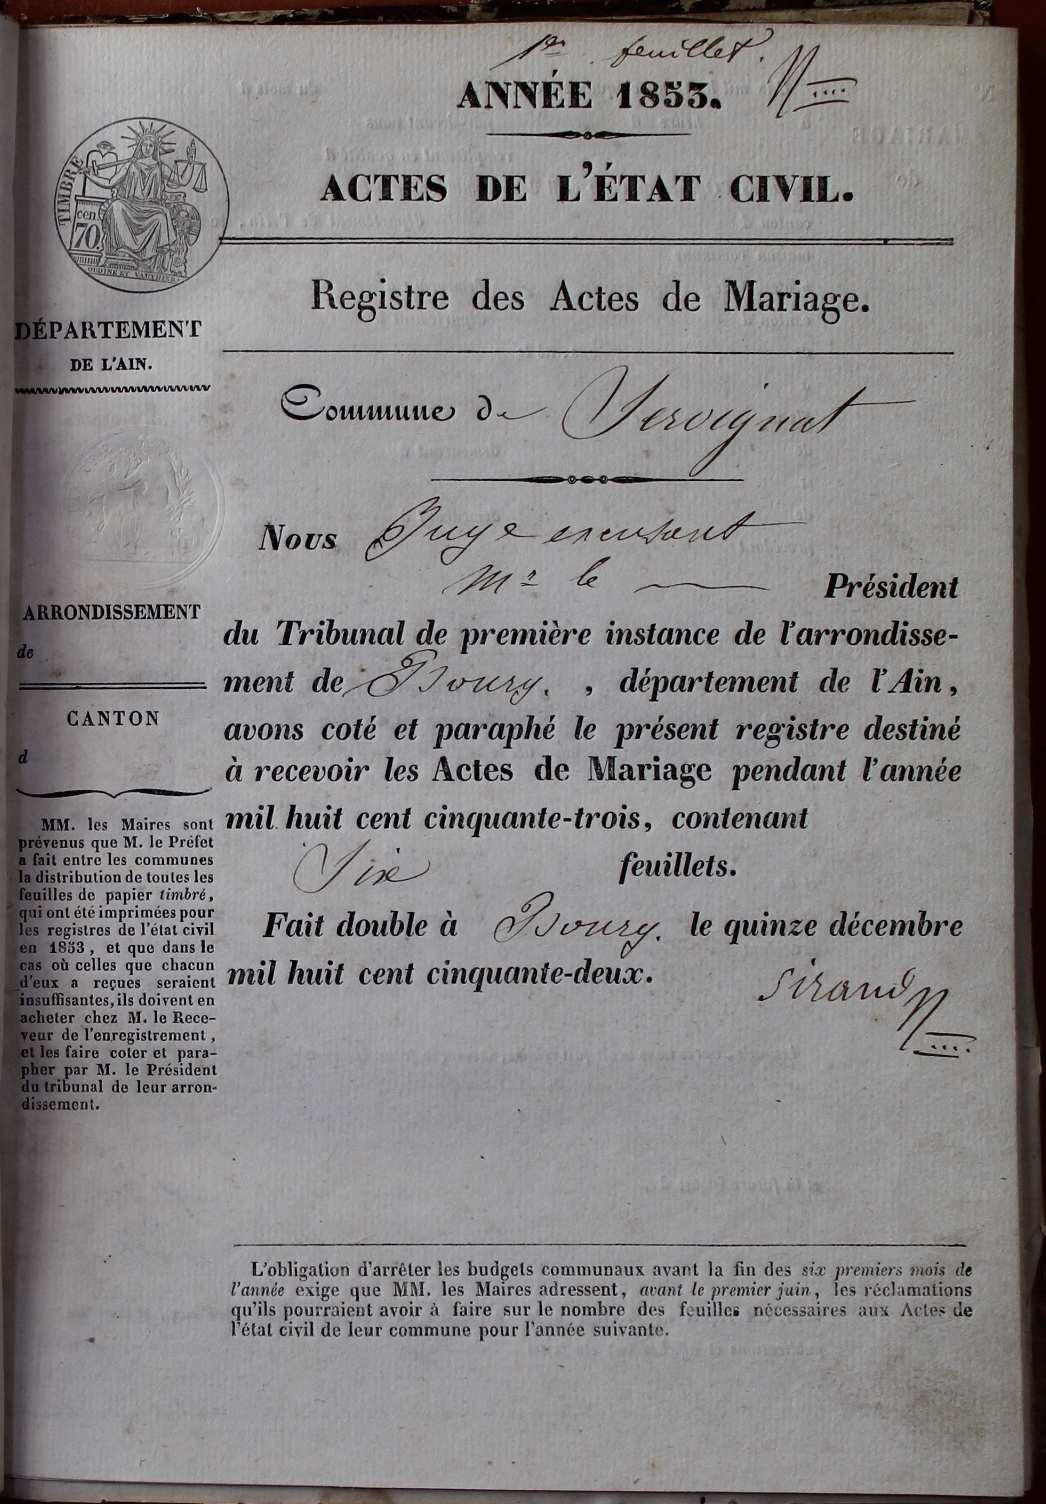 1er feuillet.
ANNÉE 1853.
ACTES DE L'ÉTAT CIVIL.
TIMBRE
cen.
70.
Registre des Actes de Mariage.
DÉPARTEMENT
DE L'AIN.
Commune de Servignat
Nous Juge excusant
Mr le Président
du Tribunal de première instance de l'arrondisse-
ment de Bourg. , département de l'Ain,
avons coté et paraphé le présent registre destiné
à recevoir les Actes de Mariage pendant l'année
mil huit cent cinquante-trois, contenant
Six feuillets.
Fait double à Bourg. le quinze décembre
mil huit cent cinquante-deux.
Sirand
ARRONDISSEMENT
de
CANTON
d
MM. les Maires sont
prévenus que M. le Préfet
a fait entre les communes
la distribution de toutes les
feuilles de papier timbré,
qui ont été imprimées pour
les registres de l'état civil
en 1853, et que dans le
cas où celles que chacun
d'eux a reçues seraient
insuffisantes, ils doivent en
acheter chez M. le Rece-
veur de l'enregistrement,
et les faire coter et para-
pher par M. le Président
du tribunal de leur arron-
dissement.
L'obligation d'arrêter les budgets communaux avant la fin des six premiers mois de
l'année exige que MM. les Maires adressent, avant le premier juin, les réclamations
qu'ils pourraient avoir à faire sur le nombre des feuilles nécessaires aux Actes de
l'état civil de leur commune pour l'année suivante.